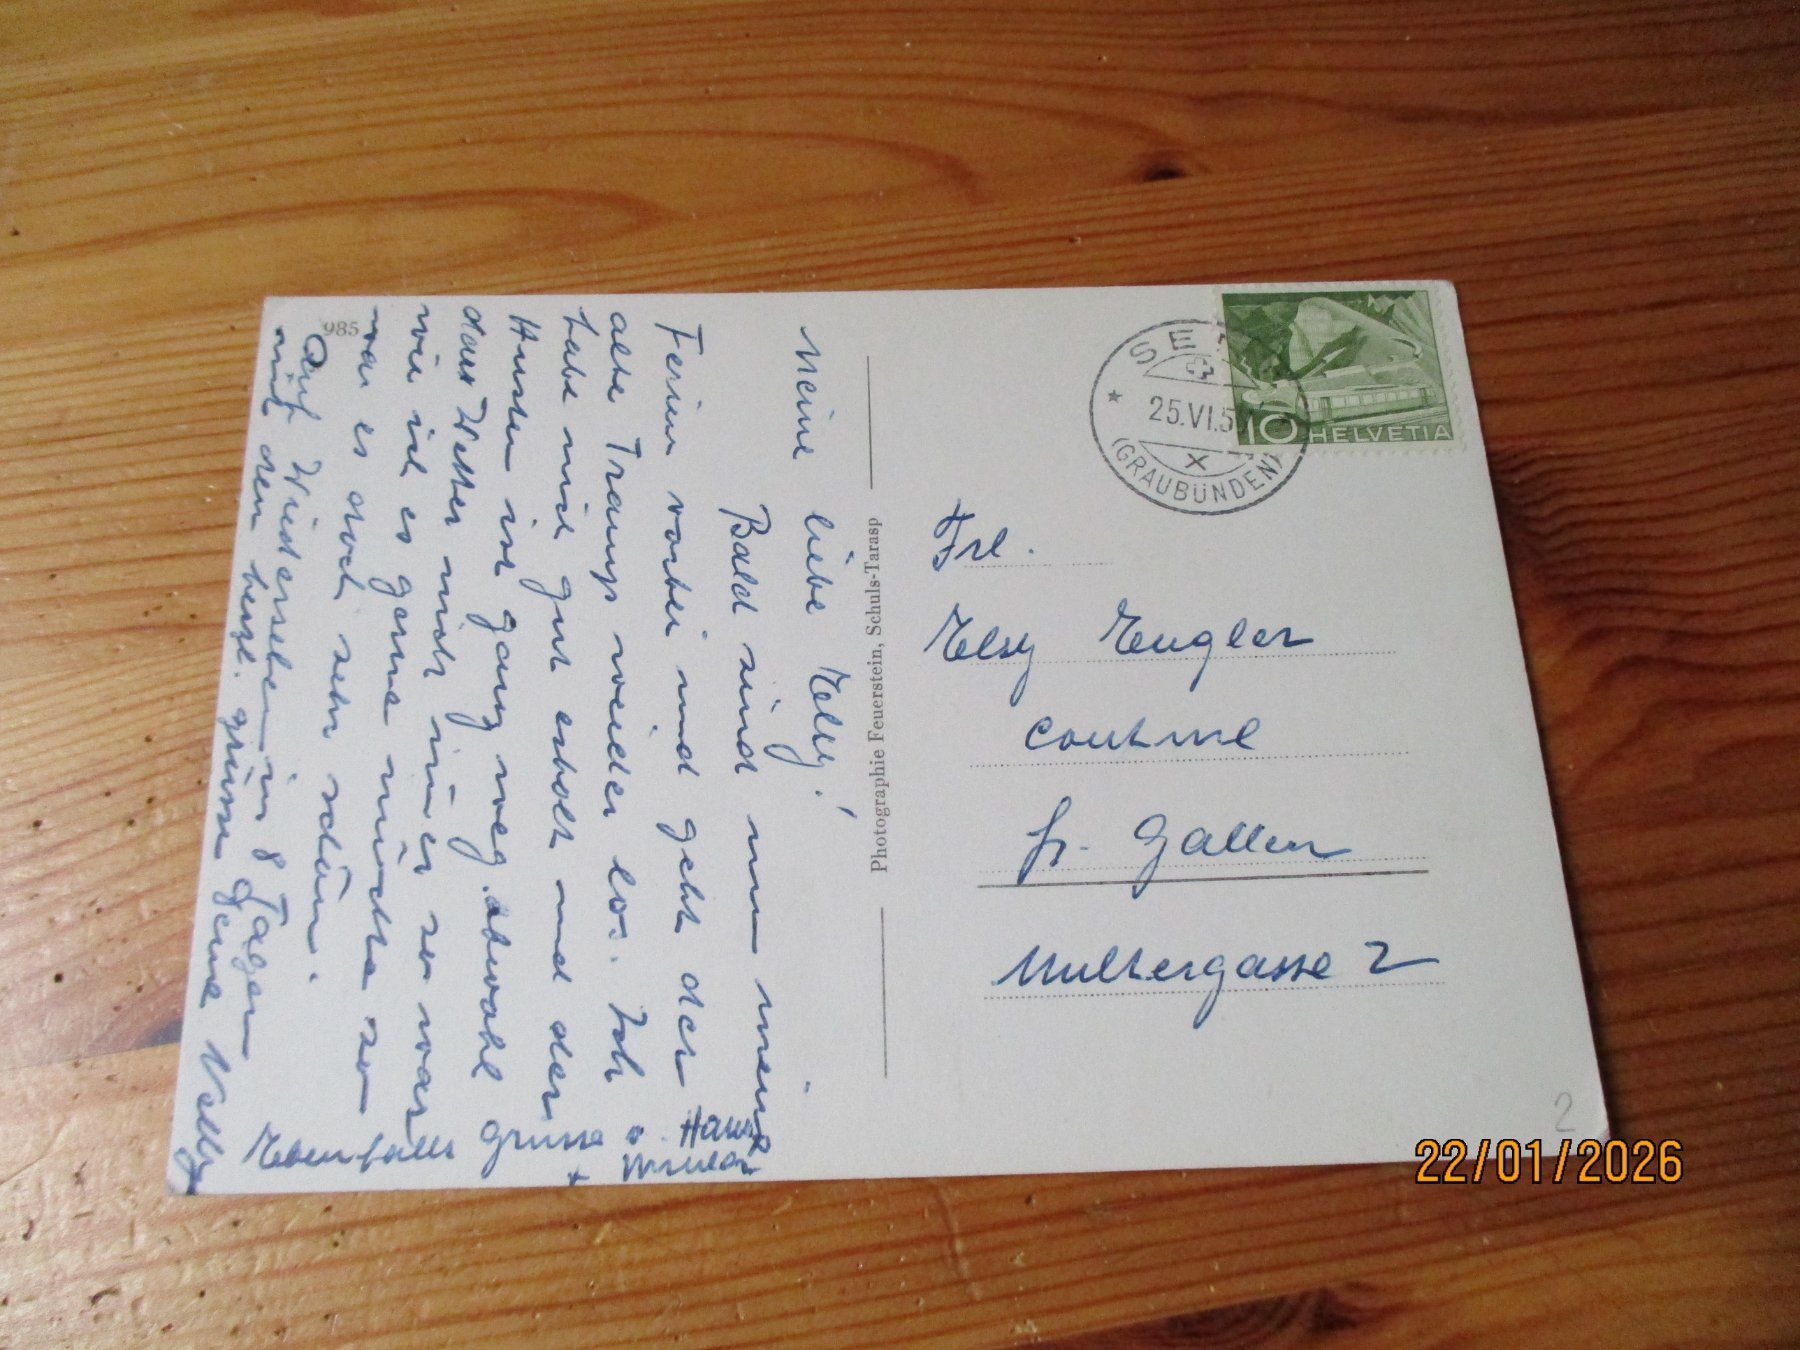 985
Meine liebe Elsy!
Bald sind nun meine
Ferien vorbei und geht der
alte Tramp wieder los. Ich
habe mich gut erholt und der
Husten ist ganz weg obwohl
das Wetter nicht immer so war
wie ich es gerne möchte so
war es doch sehr schön.
Auf Wiedersehen in 8 Tagen
mit den herzl. grüssen Deine Nelly
Ebenfalls grüsse
+
Photographie Feuerstein, Schuls-Tarasp
SE
25.VI.5
(GRAUBÜNDEN)
10 HELVETIA
Frl.
Elsy Eugler
St. Gallen
Multergasse 2
2
22/01/2026